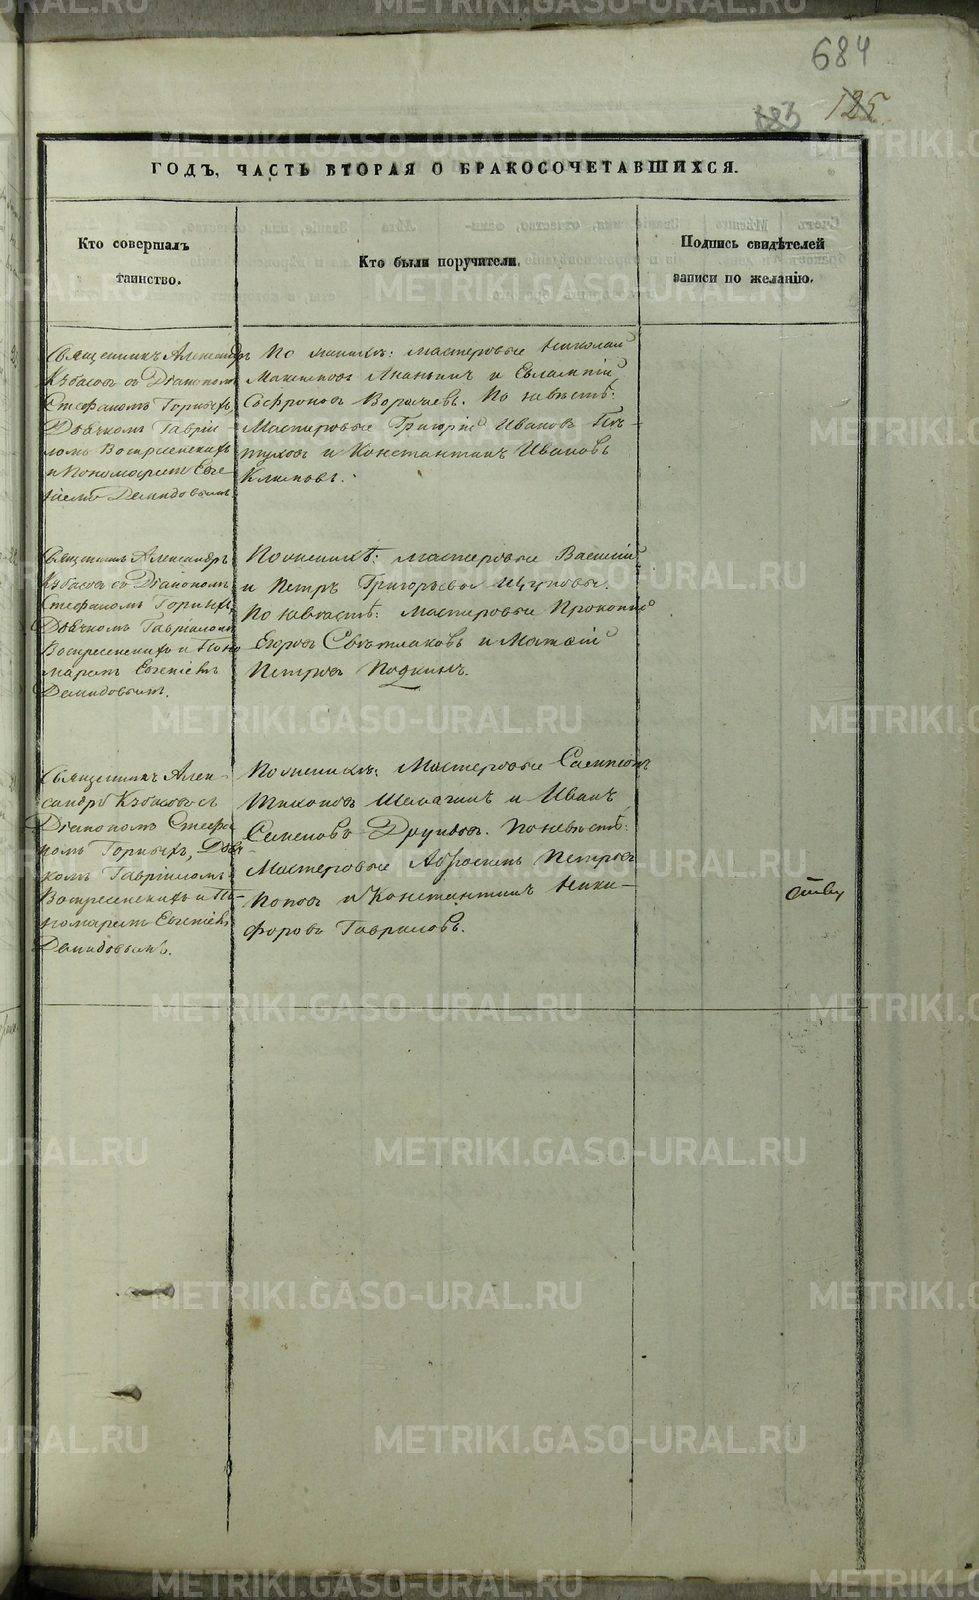 684
683 125
ГОДЪ, ЧАСТЬ ВТОРАЯ О БРАКОСОЧЕТАВШИХСЯ.
Кто совершалъ
таинство.
Кто были поручители.
Подпись свидѣтелей
записи по желанію.
Священникъ Александръ
Кѣбасовъ съ Діакономъ
Стефаномъ Горныхъ,
Дьячкомъ Гаврі-
ломъ Воскресенскихъ
и Пономаремъ Евге-
ніемъ Демидовымъ
По женихѣ: мастеровые Николай
Максимовъ Ананьинъ и Евлампій
Софроновъ Ворачевъ. По невѣстѣ:
Мастеровые Григорій Ивановъ Пѣ-
туховъ и Константинъ Ивановъ
Климовъ.
Священникъ Александръ
Кѣбасовъ съ Діакономъ
Стефаномъ Горныхъ,
Дьячкомъ Гавріиломъ
Воскресенскихъ и Поно
маремъ Евгеніемъ
Демидовымъ.
По женихѣ: мастеровые Василій
и Петръ Григорьевы Щуковы.
По невѣстѣ: мастеровые Прокопій
Егоровъ Свѣтлаковъ и Матѳій
Петровъ Подкинъ.
Священникъ Алек-
сандръ Кѣбасовъ съ
Діакономъ Стефа
номъ Горныхъ, Дьяч
комъ Гавріиломъ
Воскресенскихъ и По-
номаремъ Евгеніемъ
Демидовымъ.
По женихѣ: Мастеровые Сампсонъ
Тихоновъ и Иванъ
Семеновъ По невѣстѣ:
Мастеровые Абросимъ Петровъ
Поповъ и Константинъ Ники-
форовъ Гавриловъ.
METRIKI.GASO-URAL.RU